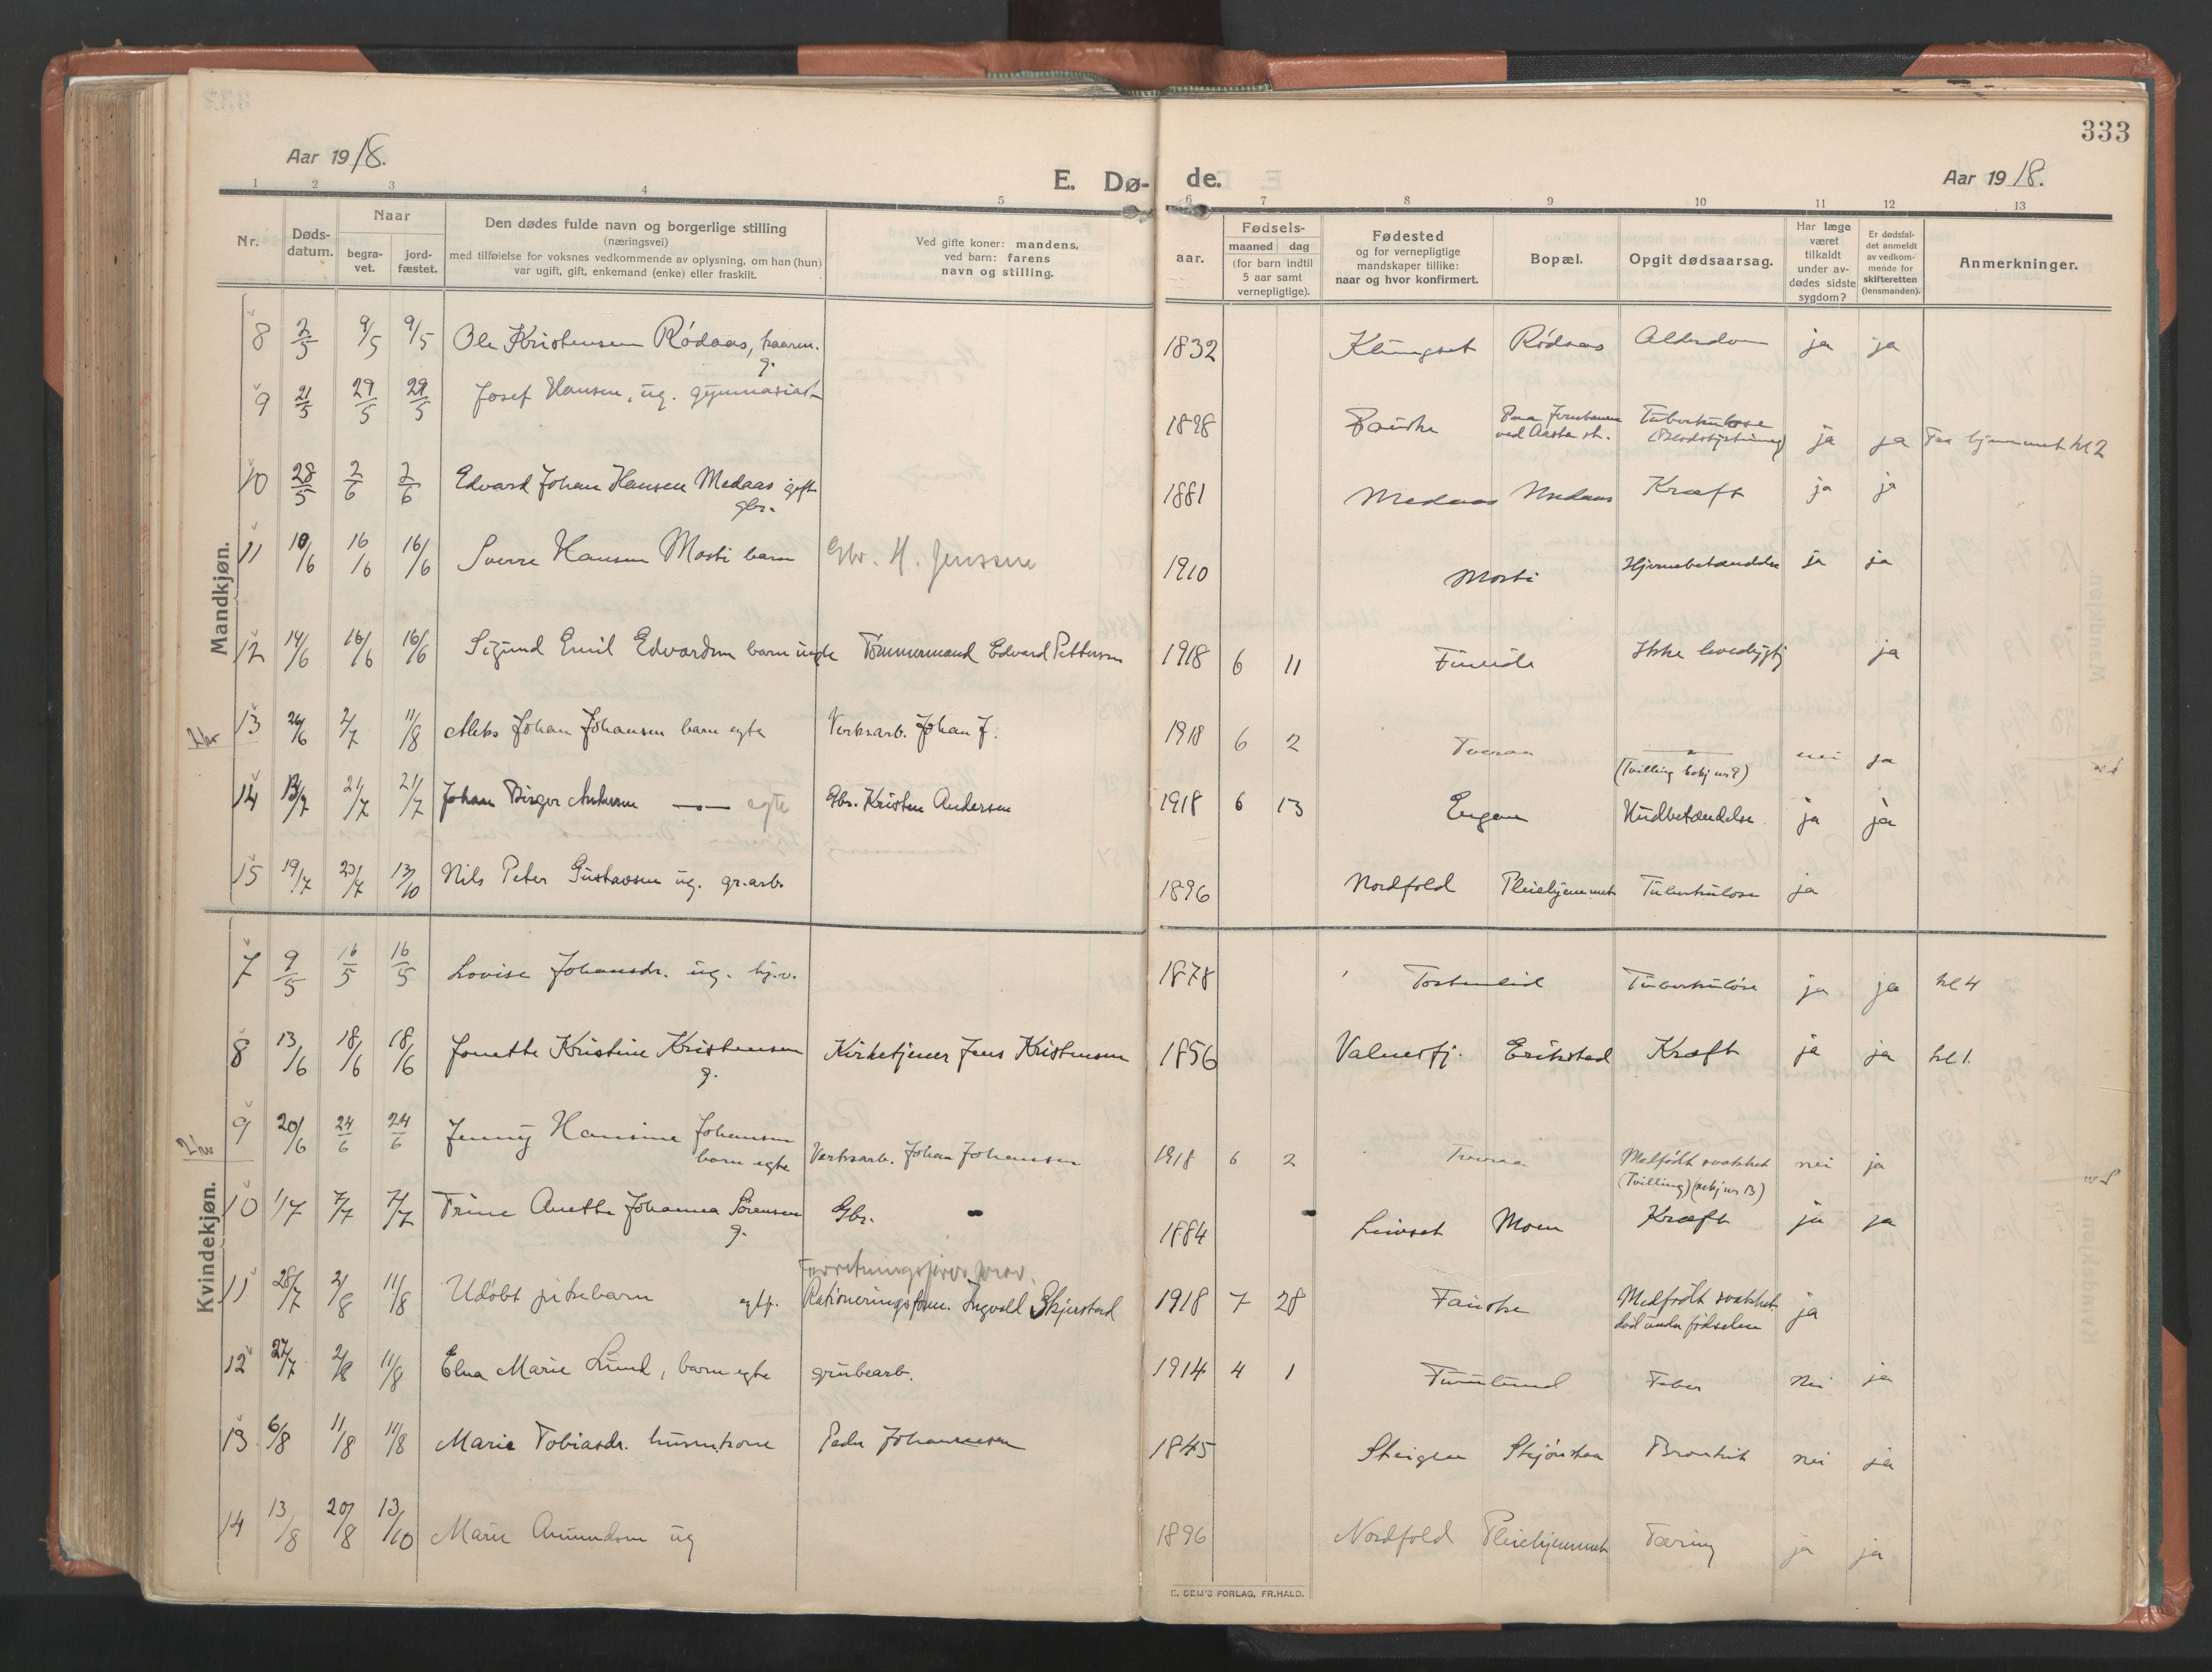 333
Aar 1918.
E. Dø- de.
Aar 1918.
1 2 3 4 5 6 7 8 9 10 11 12 13
Nr.
Døds-
datum.
Naar
begra-
vet.
jord-
fæstet.
Den dødes fulde navn og borgerlige stilling
(næringsvei)
med tilføielse for voksnes vedkommende av oplysning, om han (hun)
var ugift, gift, enkemand (enke) eller fraskilt.
Ved gifte koner: mandens,
ved barn: farens
navn og stilling.
Fødsels-
aar.
maaned dag
(for barn indtil
5 aar samt
vernepligtige).
Fødested
og for vernepligtige
mandskaper tillike:
naar og hvor konfirmert.
Bopæl.
Opgit dødsaarsag.
Har læge
været
tilkaldt
under av-
dødes sidste
sygdom?
Er dødsfal-
det anmeldt
av vedkom-
mende for
skifteretten
(lensmanden).
Anmerkninger.
Mandkjøn.
8 2/5 9/5 9/5 Ole Kristensen Rødaas, kaarm. 1832 Klungset Rødaas Alderdom ja ja
g.
9 21/5 29/5 29/5 Josef Hansen, ug. gymnasiast 1898 Fauske Paa Jernbanen Tuberkulose ja ja Fra hjemmet kl 2
ved Aasta st. (Blodstyrtning)
10 28/5 2/6 2/6 Edvard Johan Hansen Medaas gift 1881 Medaas Medaas Kræft ja ja
gbr.
11 10/6 16/6 16/6 Sverre Hansen Mosti barn Gbr. H. Jenssen 1910 Mosti Hjernebetændelse ja ja
12 14/6 16/6 16/6 Sigund Emil Edvardsen barn uegte Tømmermand Edvard Pettersen 1918 6 11 Fineide Ikke levedygtig ja
13 26/6 2/7 11/8 Aleks Johan Johansen barn egte Verksarb. Johan J. 1918 6 2 Tveraa — " — nei ja
(Tvilling kvkj nr 9)
14 13/7 21/7 21/7 Johan Birger Andersen — " — egte Gbr. Kristen Andersen 1918 6 13 Engan Hudbetændelse ja ja
15 19/7 23/7 13/10 Nils Peter Gustavsen ug. gr.arb. 1896 Nordfold Pleiehjemmet Tuberkulose ja
Kvindekjøn.
7 9/5 16/5 16/5 Lovise Johansdr. ug. hj.v. 1878 Tortenlid Tuberkulose ja ja kl 4
8 13/6 18/6 18/6 Jonette Kristine Kristensen Kirketjener Jens Kristensen 1856 Valnesfj. Erikstad Kræft ja ja kl 1.
g.
9 20/6 24/6 24/6 Jenny Hansine Johansen Verksarb. Johan Johansen 1918 6 2 Tveraa Medfødt svakhet nei ja
barn egte (Tvilling) (mkj nr 13)
10 1/7 7/7 7/7 Trine Anette Johanna Sørensen Gbr. - 1884 Leivset Moen Kræft ja ja
g.
Forretningsfører
11 28/7 2/8 11/8 Udøbt pikebarn egte. Rationeringsform. Ingvald Skjerstad 1918 7 28 Fauske Medfødt svakhet ja
død under fødselen
12 27/7 2/8 11/8 Elna Marie Lund, barn egte grubearb. 1914 4 1 Furulund Feber nei ja
13 6/8 11/8 11/8 Marie Tobiasdr. husm.kone Peder Johannesen 1845 Steigen Skjønstaa Bronkit nei ja
14 13/8 20/8 13/10 Marie Amundsen ug 1896 Nordfold Pleiehjemmet Tæring ja ja
E. SEM'S FORLAG, FR.HALD.